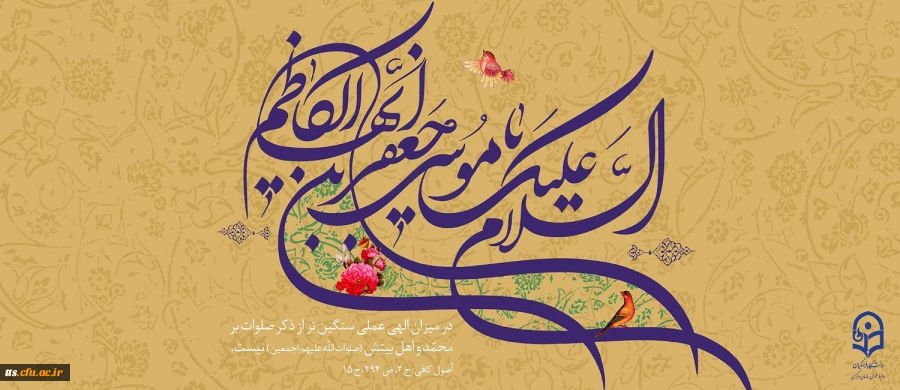 السلام علیک یا موسی بن جعفر ایها الکاظم
در میزان الهی عملی سنگین تر از ذکر صلوات بر
محمد و اهل بیتش (صلوات الله علیهم اجمعین) نیست.
اصول کافی: ج ۲، ص ۴۹۴، ح ۱۵
دانشگاه فرهنگیان
its.cfu.ac.ir